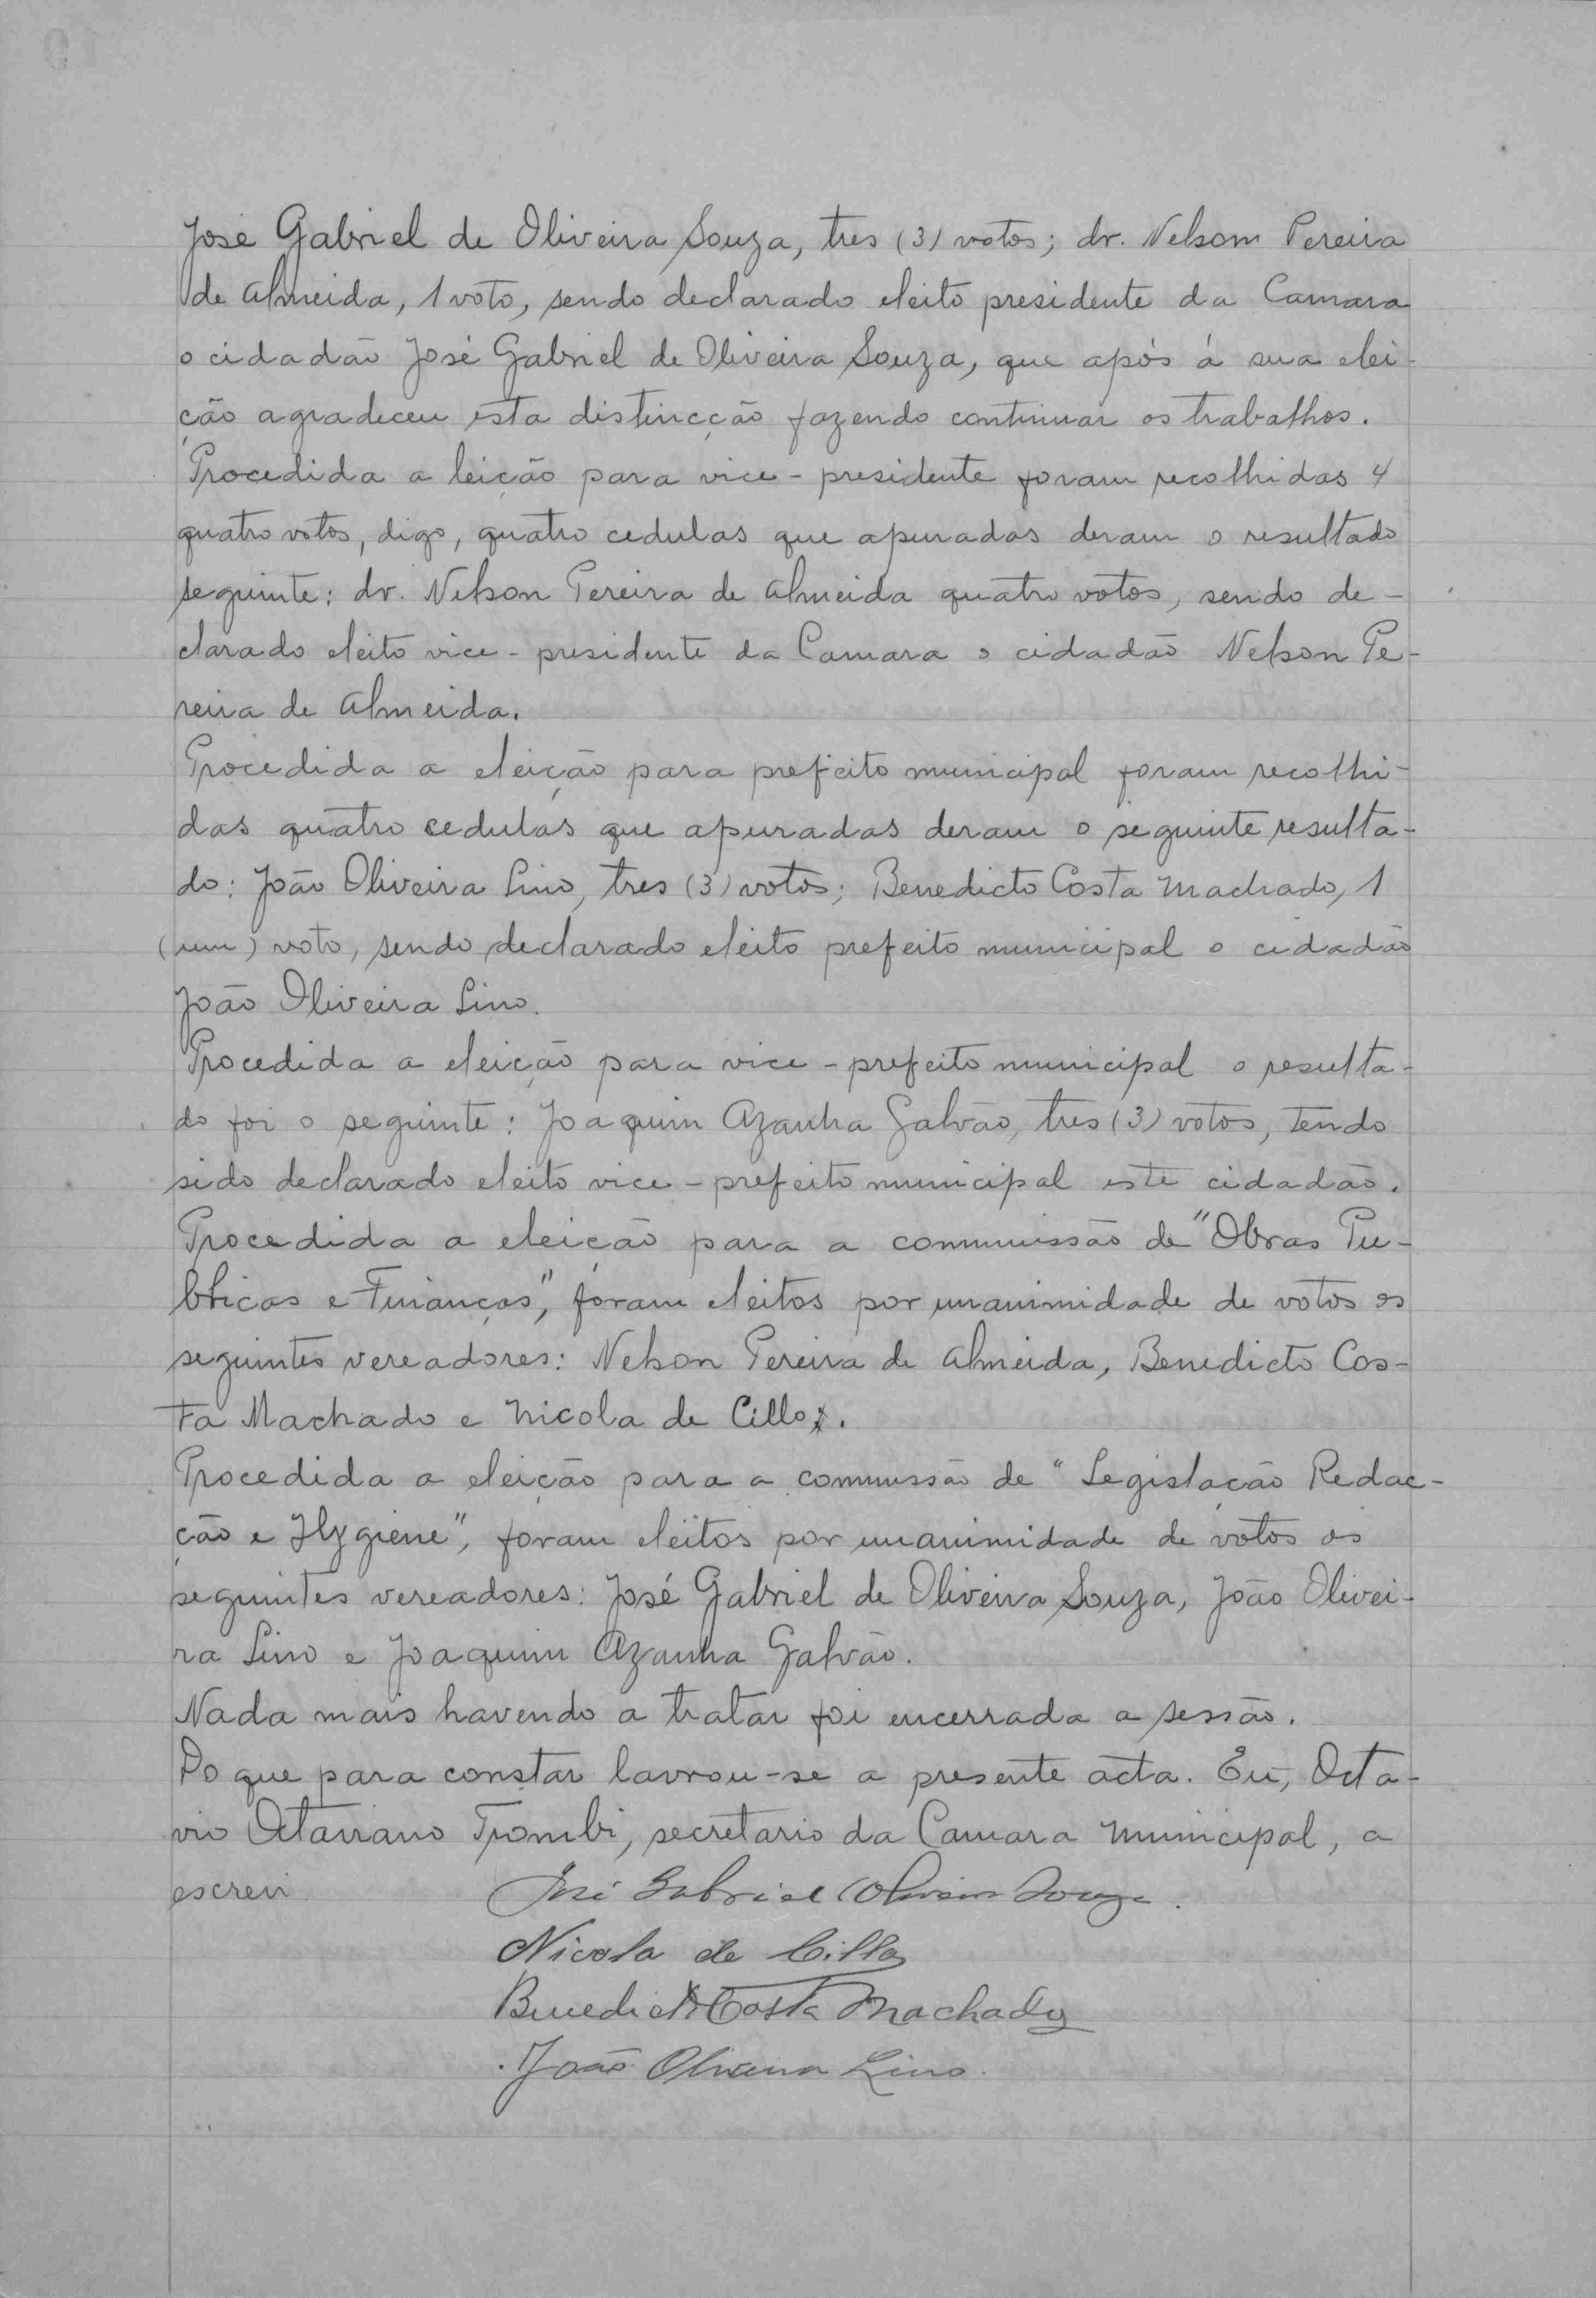 José Gabriel de Oliveira Souza, tres (3) votos; dr. Nelson Pereira
de Almeida, 1 voto, sendo declarado eleito presidente da Camara
o cidadão José Gabriel de Oliveira Souza, que após á sua elei-
ção agradeceu esta distincção fazendo continuar os trabalhos.
Procedida a leição para vice-presidente foram recolhidas 4
quatro votos, digo, quatro cedulas que apuradas deram o resultado
seguinte: dr. Nelson Pereira de Almeida quatro votos, sendo de-
clarado eleito vice-presidente da Camara o cidadão Nelson Pe-
reira de Almeida.
Procedida a eleição para prefeito municipal foram recolhi-
das quatro cedulas que apuradas deram o seguinte resulta-
do: João Oliveira Lino, tres (3) votos; Benedicto Costa Machado, 1
(um) voto, sendo declarado eleito prefeito municipal o cidadão
João Oliveira Lino.
Procedida a eleição para vice-prefeito municipal o resulta-
do foi o seguinte: Joaquim Azanha Galvão, tres (3) votos, tendo
sido declarado eleito vice-prefeito municipal este cidadão.
Procedida a eleição para a commissão de "Obras Pu-
blicas e Finanças", foram eleitos por unanimidade de votos os
seguintes vereadores: Nelson Pereira de Almeida, Benedicto Cos-
ta Machado e Nicola de Cillo.
Procedida a eleição para a commissão de "Legislação Redac-
ção e Hygiene", foram eleitos por unanimidade de votos os
seguintes vereadores: José Gabriel de Oliveira Souza, João Olivei-
ra Lino e Joaquim Azanha Galvão.
Nada mais havendo a tratar foi encerrada a sessão.
Do que para constar lavrou-se a presente acta. Eu, Octa-
vio Octaviano Trombi, secretario da Camara Municipal, a
escrevi.
José Gabriel Oliveira Souza.
Nicola de Cillo
Benedicto Costa Machado
João Oliveira Lino.